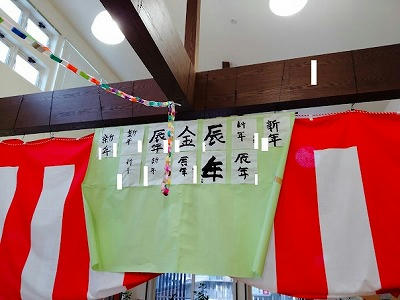 新年
新年
辰年
辰年
金
辰年
辰年
新年
新年
新年
新年